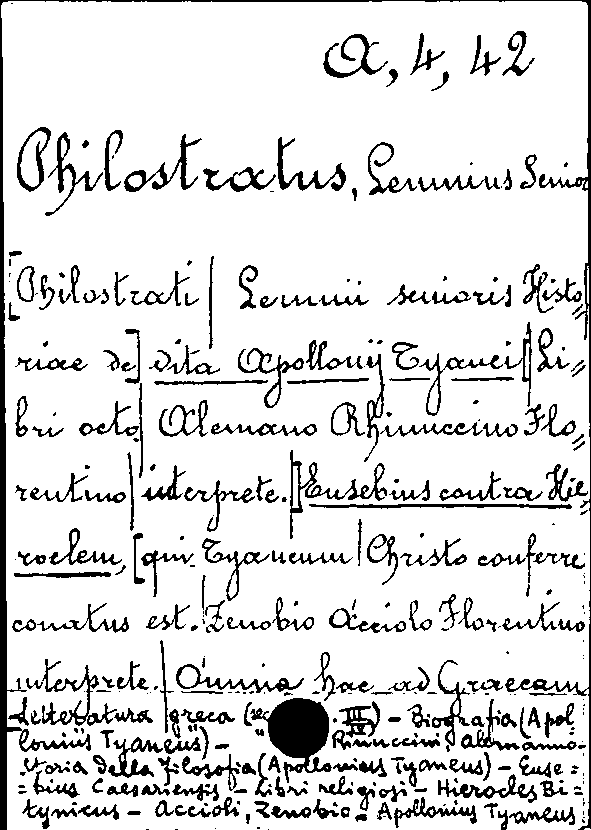 A, 4, 42
Philostratus, Lemnius Senior
[Philostrati | Lemnii senioris Histo
riae de] vita Apollonij Tyanei [Li
bri octo | Alemano Rhinuccino Flo
rentino | interprete. [Eusebius contra Hie
roclem, [qui Tyaneum | Christo conferre
conatus est. | Zenobio Acciolo Florentino
interprete. | Omnia hac ad Graecam
Letteratura greca (sec. III) – Biografia (Apol
loniüs Tyaneüs) – Rinuccini, Alamanno –
Storia della filosofia (Apollonius Tyaneus) – Euse =
= bius Caesariensis – Libri religiosi – Hierocles Bi =
tynicus – Accioli, Zenobio – Apollonius Tyaneus